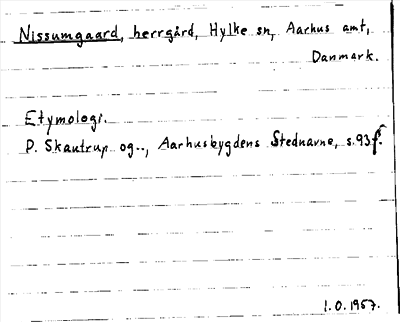 Nissumgaard, herrgård, Hylke sn, Aarhus amt,
Danmark.
Etymologi.
P. Skautrup og.., Aarhusbygdens Stednavne, s.93f.
1.0.1957.